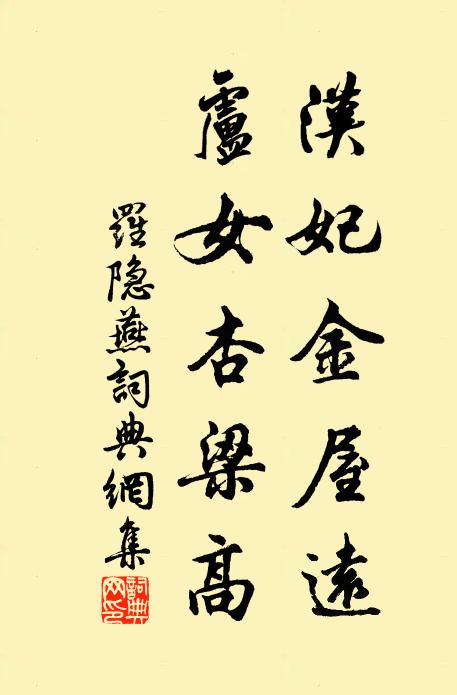 漢妃金屋遠
盧女杏梁高
羅隐燕詞典網集
詞典網印